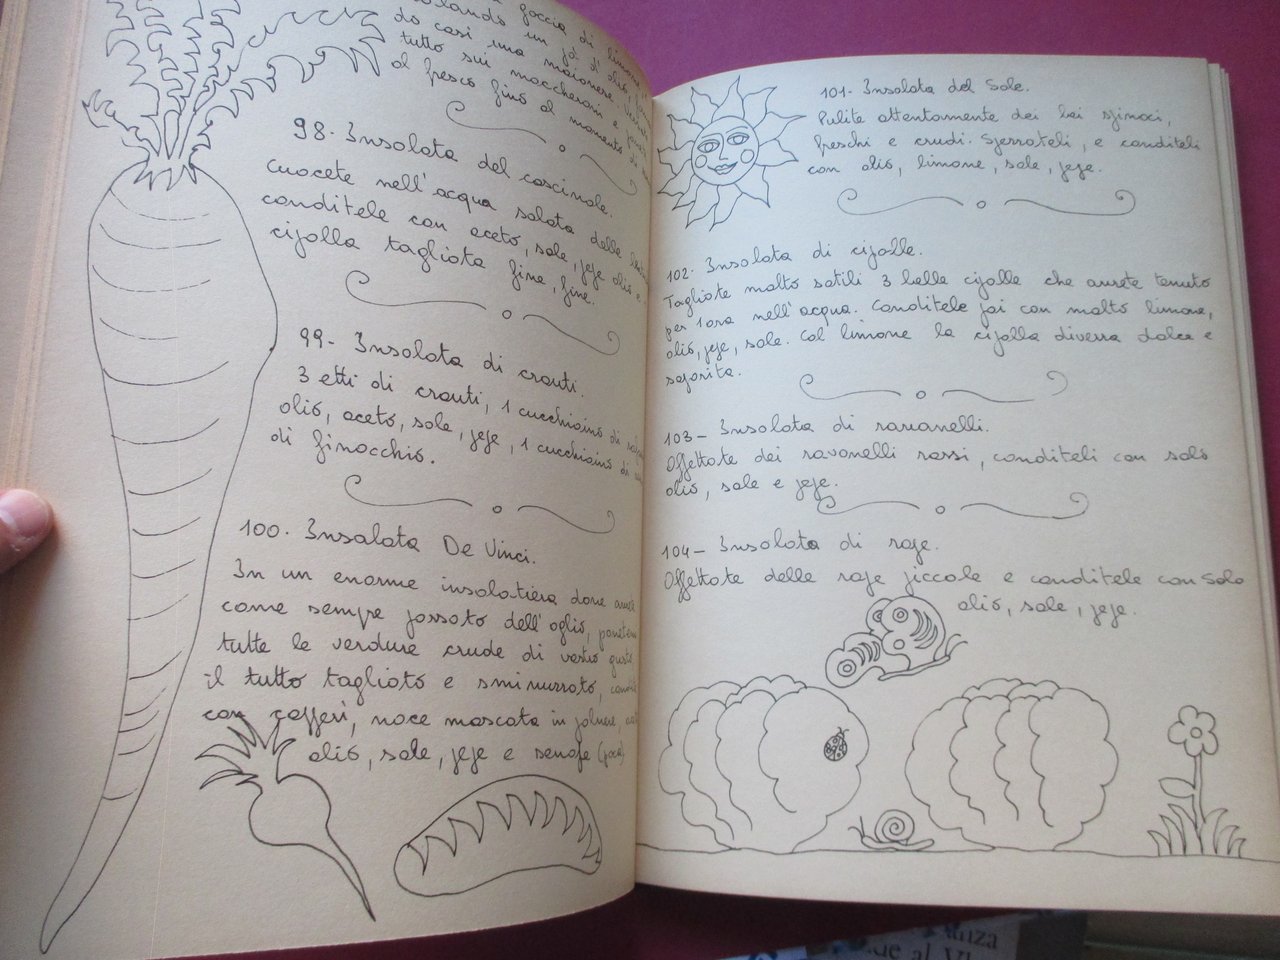 goccia di limone,
lando un po' d'olio,
do così una maionese.
tutto sui maccheroni e
al fresco fino al momento di
98- Insalata del cascinale.
Cuocete nell'acqua salata delle
conditele con aceto, sale, pepe olio e
cipolla tagliata fine, fine.
99- Insalata di crauti.
3 etti di crauti, 1 cucchiaino di
olio, aceto, sale, pepe, 1 cucchiaino di
di finocchio.
100- Insalata De Vinci.
In un enorme insalatiera dove avrete
come sempre passato dell'aglio, ponete
tutte le verdure crude di vostro gusto,
il tutto tagliato e sminuzzato,
con capperi, noce moscata in polvere,
olio, sale, pepe e senape (poca)
101- Insalata del Sole.
Pulite attentamente dei bei spinaci,
freschi e crudi. Sperrateli, e conditeli
con olio, limone, sale, pepe.
102- Insalata di cipolle.
Tagliate molto sotili 3 belle cipolle che avrete tenuto
per 1 ora nell'acqua. Conditele poi con molto limone,
olio, pepe, sale. Col limone la cipolla diverrà dolce e
saporita.
103- Insalata di ravanelli.
Affettate dei ravanelli rossi, conditeli con solo
olio, sale e pepe.
104- Insalata di rape.
Affettate delle rape piccole e conditele con solo
olio, sale, pepe.